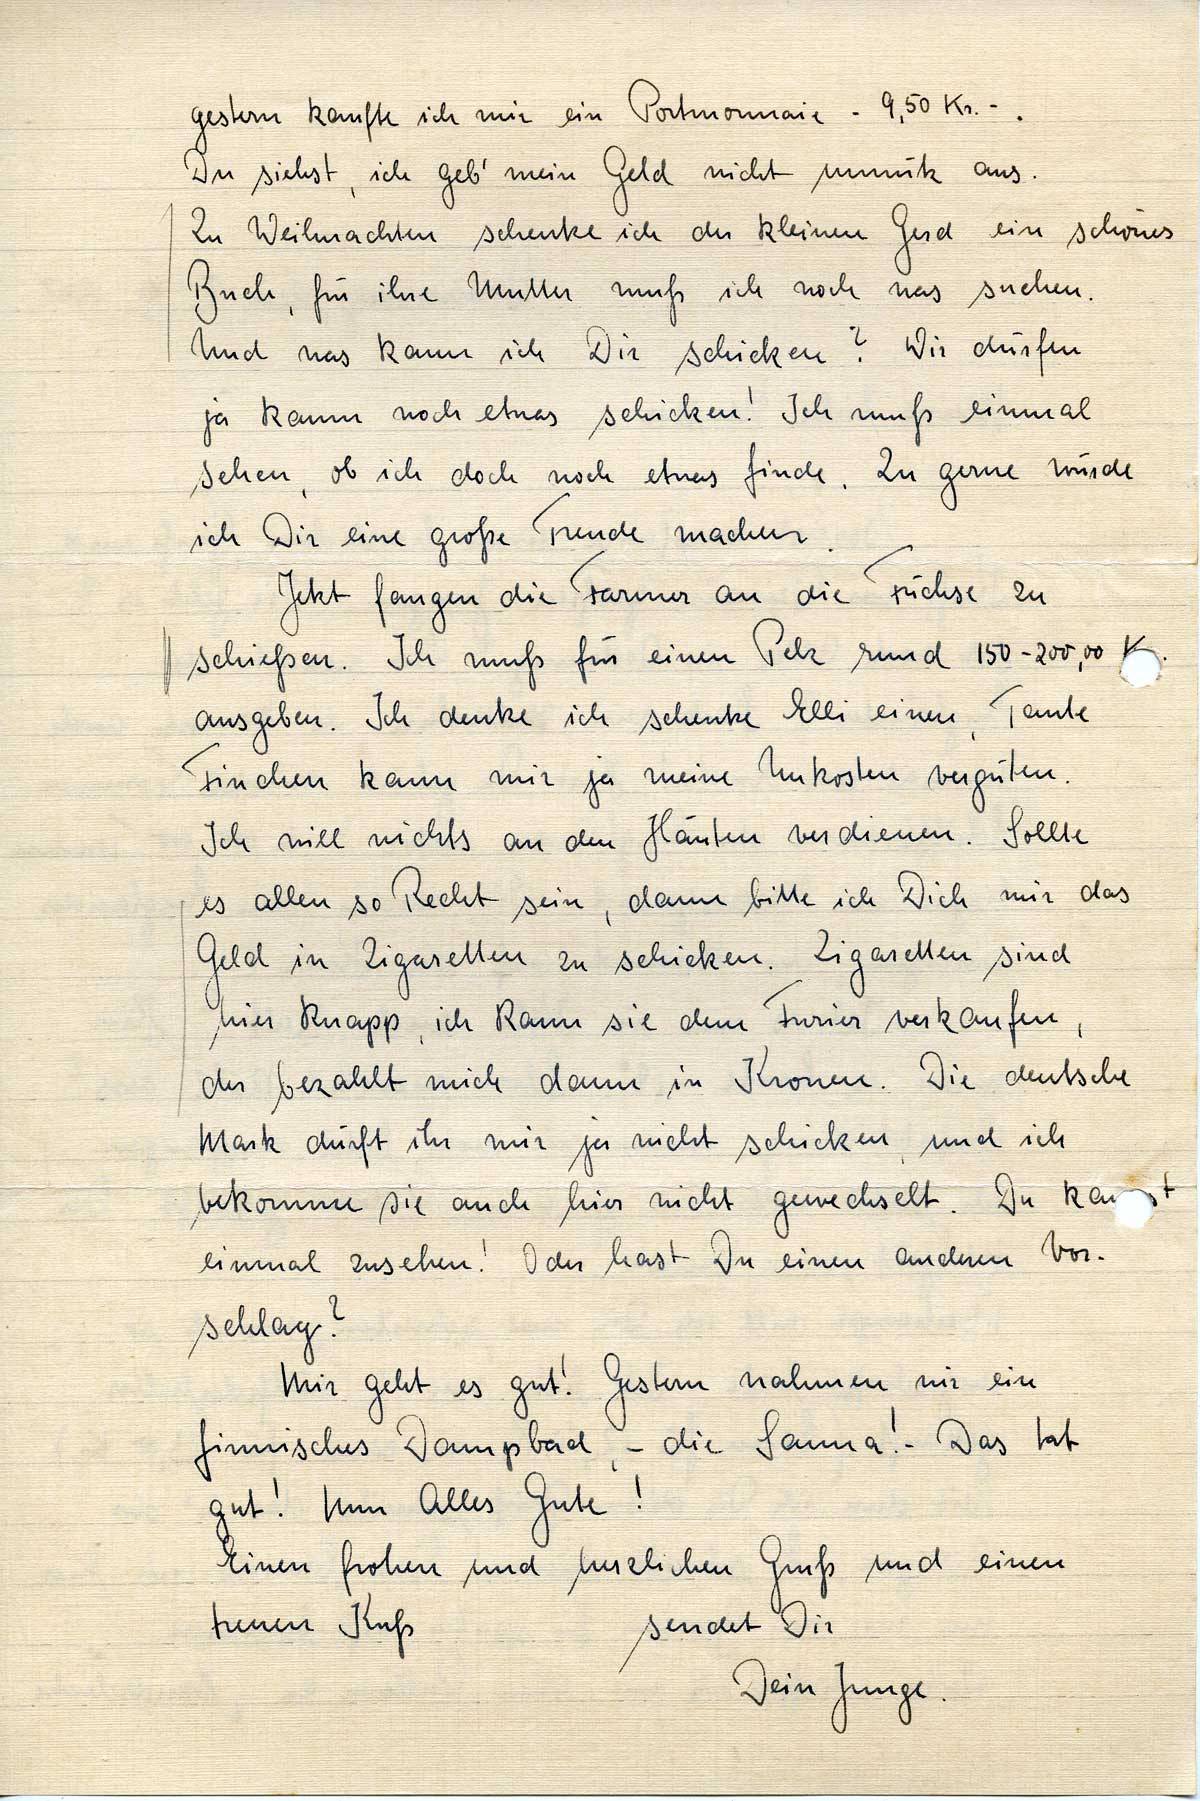 gestern kaufte ich mir ein Portmonnaie - 9,50 Kr. - .
Du siehst, ich geb' mein Geld nicht unnütz aus.
Zu Weihnachten schenke ich der kleinen Gerd ein schönes
Buch, für ihre Mutter muß ich noch was suchen.
Und was kann ich Dir schicken? Wir dürfen
ja kaum noch etwas schicken! Ich muß einmal
sehen, ob ich doch noch etwas finde. Zu gerne würde
ich Dir eine große Freude machen.
Jetzt fangen die Farmer an die Füchse zu
schießen. Ich muß für einen Pelz rund 150-200,00 K.
ausgeben. Ich denke ich schenke Elli einen, Tante
Finchen kann mir ja meine Unkosten vergüten.
Ich will nichts an den Häuten verdienen. Sollte
es allen so Recht sein, dann bitte ich Dich mir das
Geld in Zigaretten zu schicken. Zigaretten sind
hier knapp, ich kann sie dem Furier verkaufen,
der bezahlt mich dann in Kronen. Die deutsche
Mark dürft ihr mir ja nicht schicken, und ich
bekomme sie auch hier nicht gewechselt. Du kannst
einmal zusehen! Oder hast Du einen anderen Vor-
schlag?
Mir geht es gut! Gestern nahmen wir ein
finnisches Dampfbad, - die Sauna! - Das tat
gut! Nun Alles Gute!
Einen frohen und herzlichen Gruß und einen
treuen Kuß sendet Dir
Dein Junge.